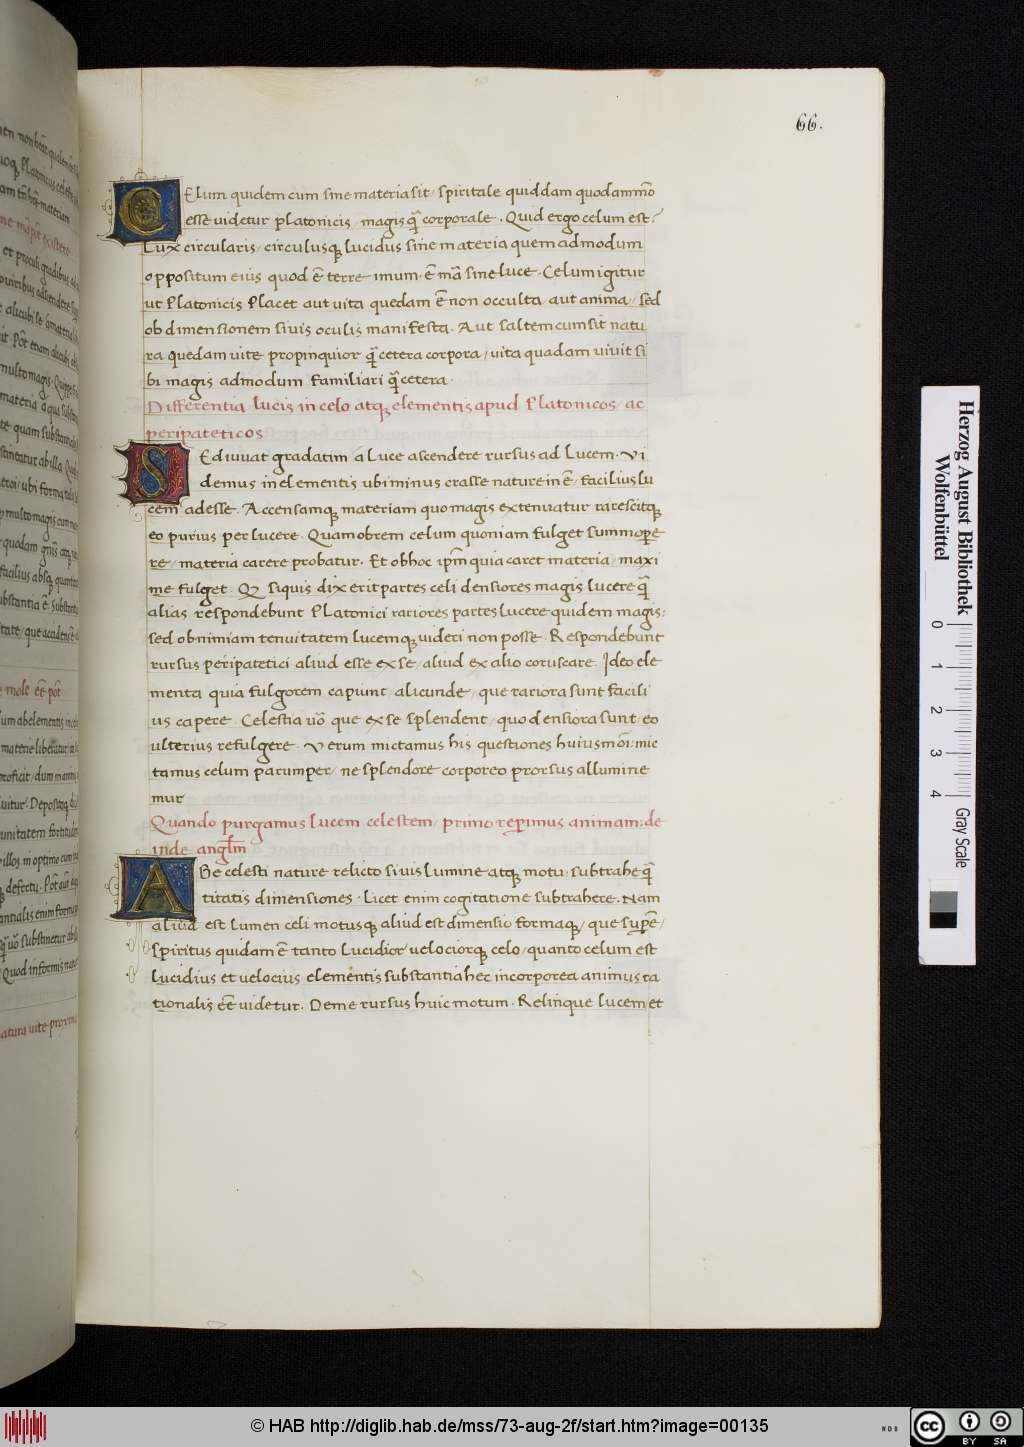 66.
CElum quidem cum sine materia sit / spiritale quiddam quodammō
esse videtur platonicis / magisq̄ corporale. Quid ergo celum est?
Lux circularis / circulusqȝ lucidus sine materia quemadmodum
oppositum eius quod ē terre imum. ē mā sine luce. Celum igitur
ut Platonicis Placet aut uita quedam ē non occulta / aut anima / sed
ob dimensionem siuis oculis manifesta. Aut saltem cum sit natu
ra quedam uite propinquior q̄ cetera corpora / uita quadam uiuit si
bi magis admodum familiari q̄ cetera.
Differentia lucis in celo atqȝ elementis apud Platonicos / ac
peripateticos
SEd iuuat gradatim á luce ascendere rursus ad lucem. Vi
demus in elementis ubi minus crasse nature in ē / facilius lu
cem adesse. Accensamqȝ materiam quo magis extenuatur rarescitqȝ
eo purius perlucere. Quamobrem celum quoniam fulget summope
re / materia carere probatur. Et ob hoc ip̄m quia caret materia / maxi
me fulget. Q siquis dixerit partes celi densiores magis lucere q̄
alias respondebunt Platonici rariores partes lucere quidem magis:
sed ob nimiam tenuitatem lucemqȝ uideri non posse. Respondebunt
rursus peripatetici aliud esse ex se / aliud ex alio coruscare. Ideo ele
menta quia fulgorem capiunt / alicunde / que rariora sunt facili
us capere. Celestia uō que ex se splendent / quo densiora sunt / eo
ulterius refulgere. Verum mictamus his questiones huiusmōi: mic
tamus celum parumper / ne splendore corporeo prorsus allumine
mur
Quando purgamus lucem celestem / primo reperimus animam: de
inde angl̄m
ABe celesti nature relicto siuis lumine atqȝ motu / subtrahe q̄
titatis dimensiones. Licet enim cogitatione subtrahere. Nam
aliud est lumen celi motusqȝ aliud est dimensio formaqȝ / que sup̄ē /
spiritus quidam ē tanto lucidior uelociorqȝ celo / quanto celum est
lucidius et uelocius elementis substantia hec incorporea animus ra
tionalis eē uidetur. Deme rursus huic motum. Relinque lucem et
Herzog August Bibliothek
Wolfenbüttel
0 1 2 3 4 Gray Scale
© HAB http://diglib.hab.de/mss/73-aug-2f/start.htm?image=00135
WDB
cc BY SA